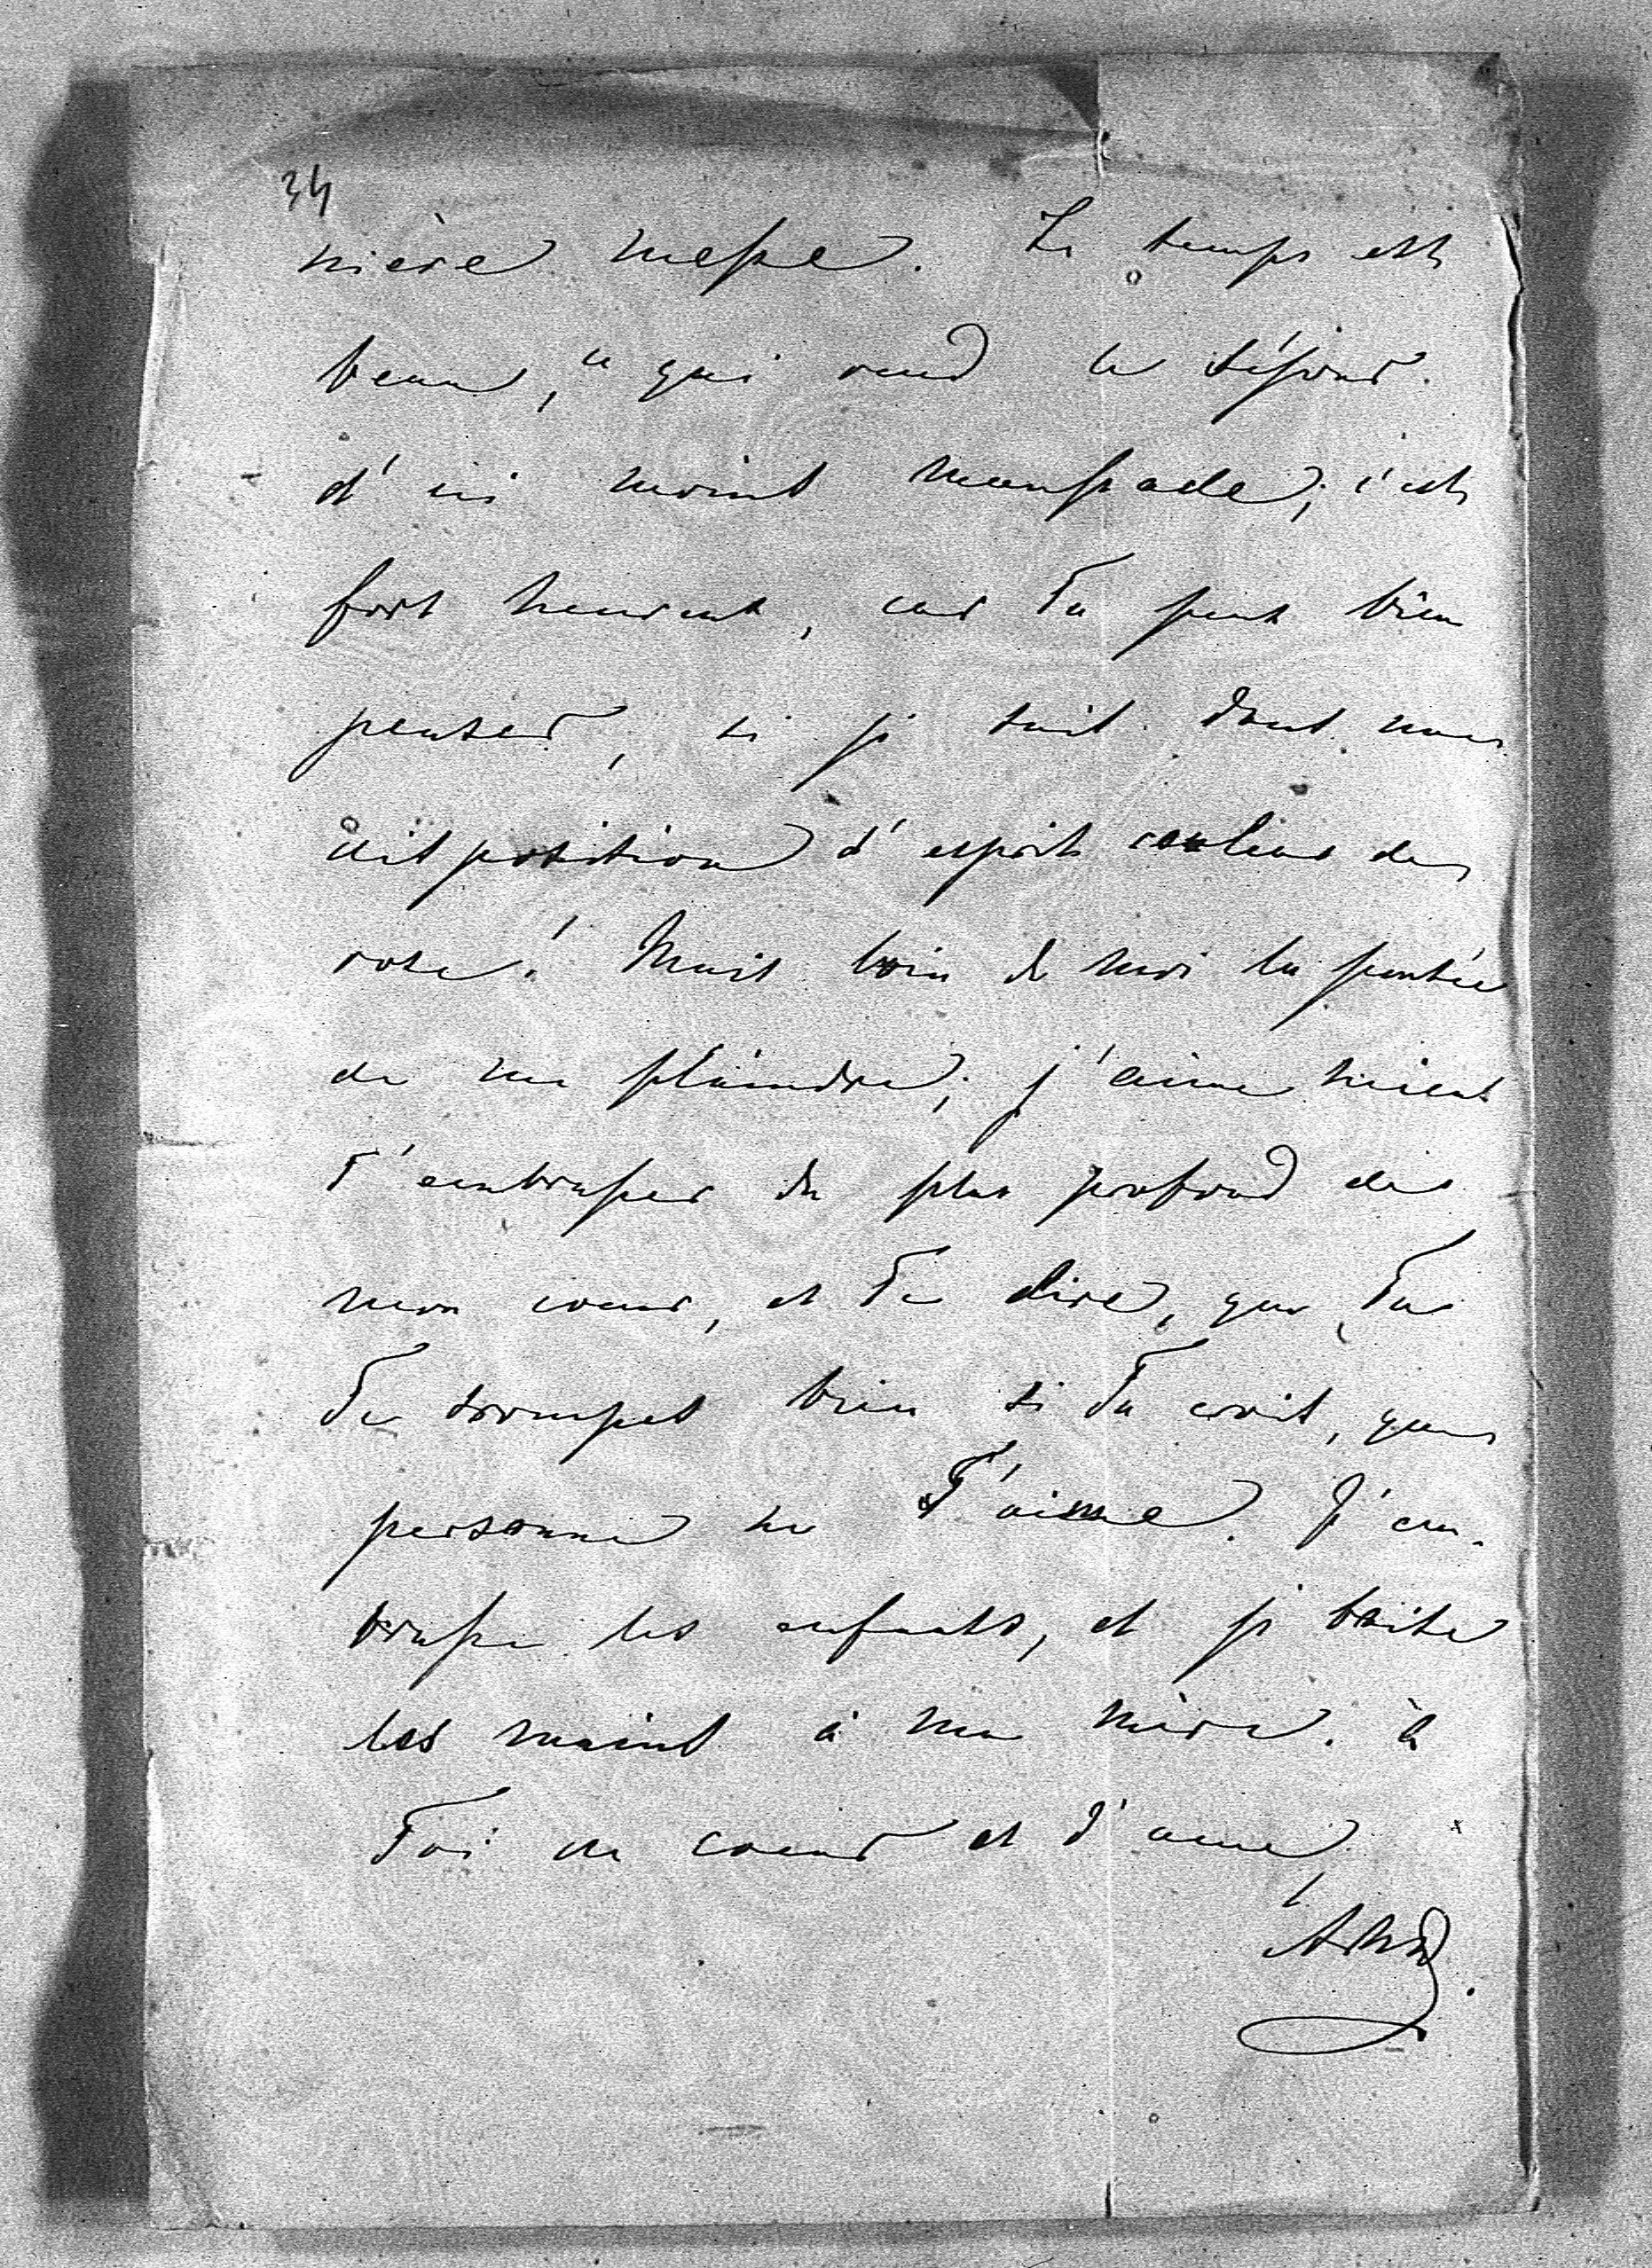 34
nière messe. Le temps est
beau, ce qui rend le séjour
d'ici moins maussade; c'est
fort heureux, car Tu peux bien
penser, si je suis dans une
disposition d'esprit couleur de
rose! Mais loin de moi la pensée
de me plaindre; j'aime mieux
T'embrasser du plus profond de
mon coeur, et Te dire, que Tu
Te trompes bien si Tu crois, que
personne ne T'aime. J'em-
brasse les enfants, et je baise
les mains à ma mère. à
Toi de coeur et d'ame,